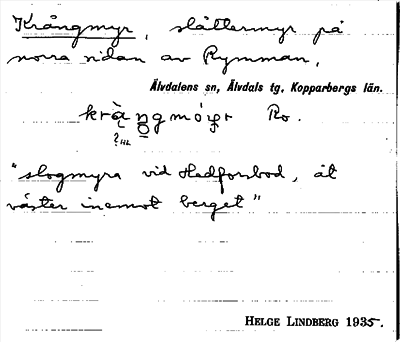 Krångmyr, slåttermyr på
norra sidan av Rymman,
Älvdalens sn, Älvdals tg. Kopparbergs län.
Ro.
"slogmyra vid Hedforsbod, åt
väster inemot berget"
HELGE LINDBERG 1935.